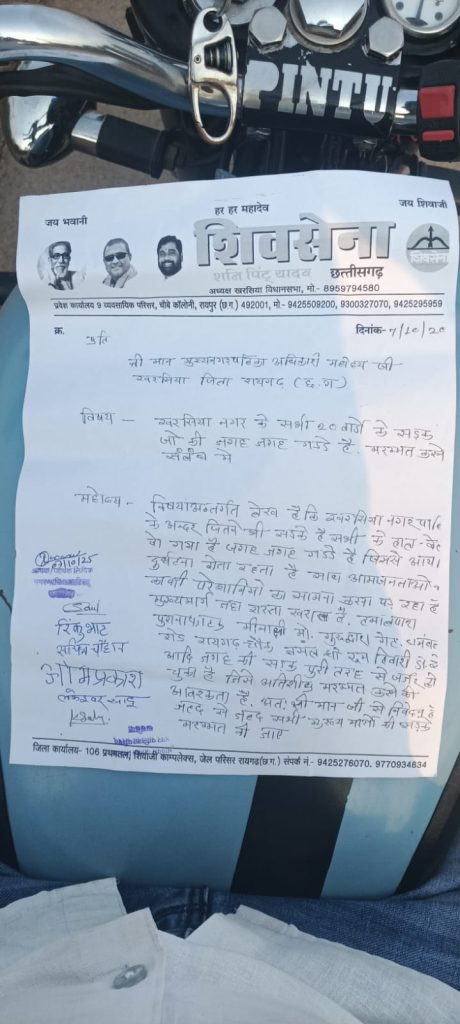 PINTU
जय भवानी
हर हर महादेव
जय शिवाजी
शिवसेना
शनि पिंटू यादव
छत्तीसगढ़
शिवसेना
अध्यक्ष खरसिया विधानसभा, मो.- 8959794580
प्रदेश कार्यालय 9 व्यवसायिक परिसर, चौबे कॉलोनी, रायपुर (छ.ग.) 492001, मो.- 9425509200, 9300327070, 9425295959
क्र.
दिनांक- 7/10/20
प्रति
श्री मान मुख्यनगरपालिका अधिकारी महोदय जी
खरसिया जिला रायगढ़ (छ.ग)
विषय - खरसिया नगर के सभी 20 वार्डो के सड़क
जो की जगह जगह गड्डे है. मरम्मत करने
संबंध मे
महोदय - विषयान्तर्गत लेख है कि खरसिया नगर
के अन्दर जितने भी सड़के है सभी के हाल
हो गया है जगह जगह गड्डे है जिससे आये
दुर्घटना होता रहता है साथ आमजनताओ
काफी परेशानियों का सामना करना पड रहा है
मुख्यमार्ग जहा रास्ता खराब है.
रोड रायगढ़ चौक,
आदि जगह की सड़क पुरी तरह से जर्जर हो
चुका है जिसे अतिशीघ्र मरम्मत करने की
अवश्कता है. अतः श्री मान जी से निवेदन है
जल्द से जल्द सभी मुख्य मार्गो की सड़के
मरम्मत की जाए
ओमप्रकाश
जिला कार्यालय- 106 प्रथमतल, शिवाजी काम्पलेक्स, जेल परिसर रायगढ़(छ.ग.) संपर्क नं.- 9425276070. 9770934634